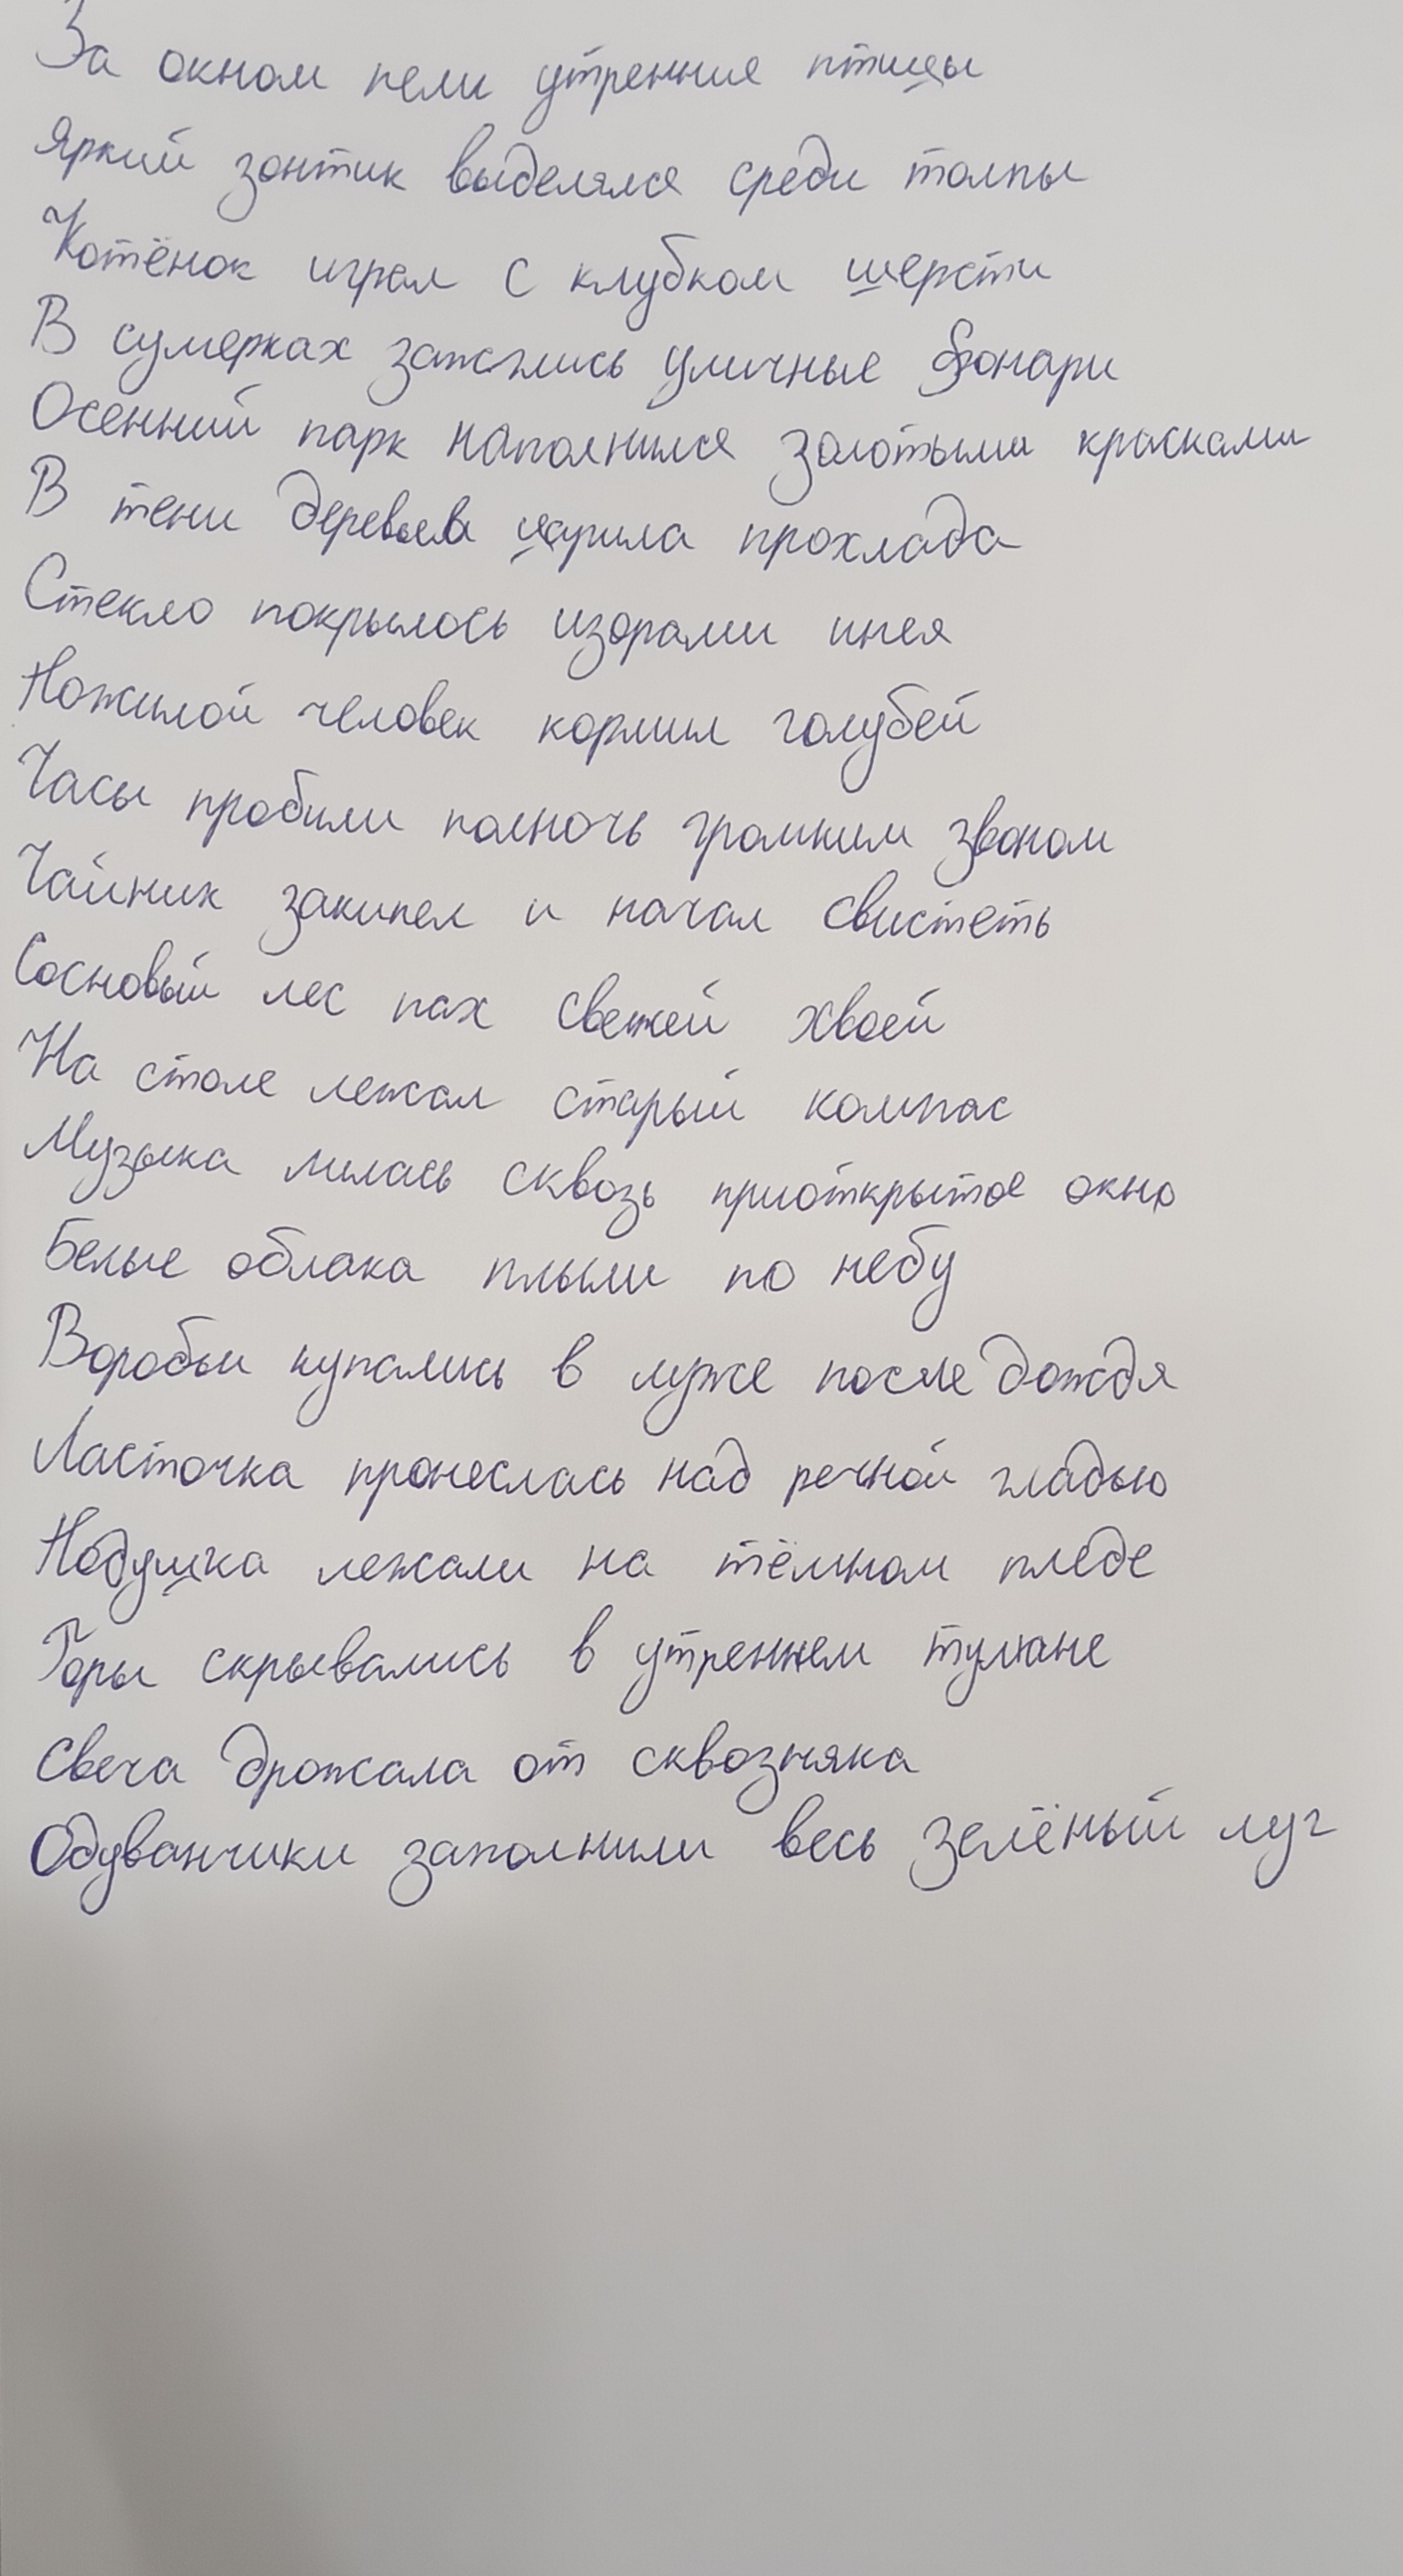 За окном пели утренние птицы
Яркий зонтик выделялся среди толпы
Котёнок играл с клубком шерсти
В сумерках зажглись уличные фонари
Осенний парк наполнился золотыми красками
В тени деревьев царила прохлада
Стекло покрылось изорами инея
Пожилой человек кормил голубей
Часы пробили полночь громким звоном
Чайник закипел и начал свистеть
Сосновый лес пах свежей хвоей
На столе лежал старый компас
Музыка лилась сквозь приоткрытое окно
Белые облака плыли по небу
Воробьи купались в луже после дождя
Ласточка пронеслась над речной гладью
Подушка лежали на тёмном пледе
Горы скрывались в утреннем тумане
Свеча дрожала от сквозняка
Одуванчики заполнили весь зелёный луг